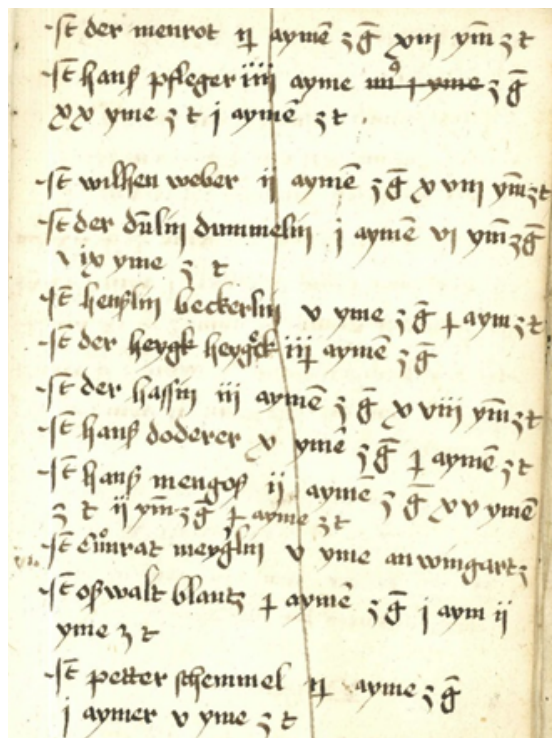 ·st der menrot ıȷ aymē z g̃ xviii ym̄ z t
·st hanß pfleger iiii ayme z g̃
xx yme z t i aymē z t
·st wilhen weber ii aymē z g̃ x viii ym̄ z t
·st der dummelin i aymē vi ym̄ z g̃
ix yme z t
·st henßlin beckerlin v yme z g̃ aym z t
·st der heygk aymē z g̃
·st der hassin iii aymē z g̃ x viii ym̄ z t
·st hanß doderer x ymē z g̃ aymē z t
·st hanß mengoß ii aymē z g̃ xv ymē
z t ii ym̄ z g̃ ayme z t
·st cůnrat v yme an wingartz
·st oßwalt blantz aymē z g̃ i aym ii
yme z t
·st petter schemmel ayme z g̃
i aymer v yme z t